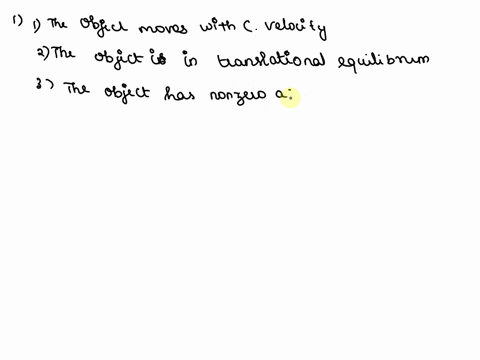 1) 1) The object moves with C. velocity
2) The object is in translational equilibrium
3) The object has nonzero a: